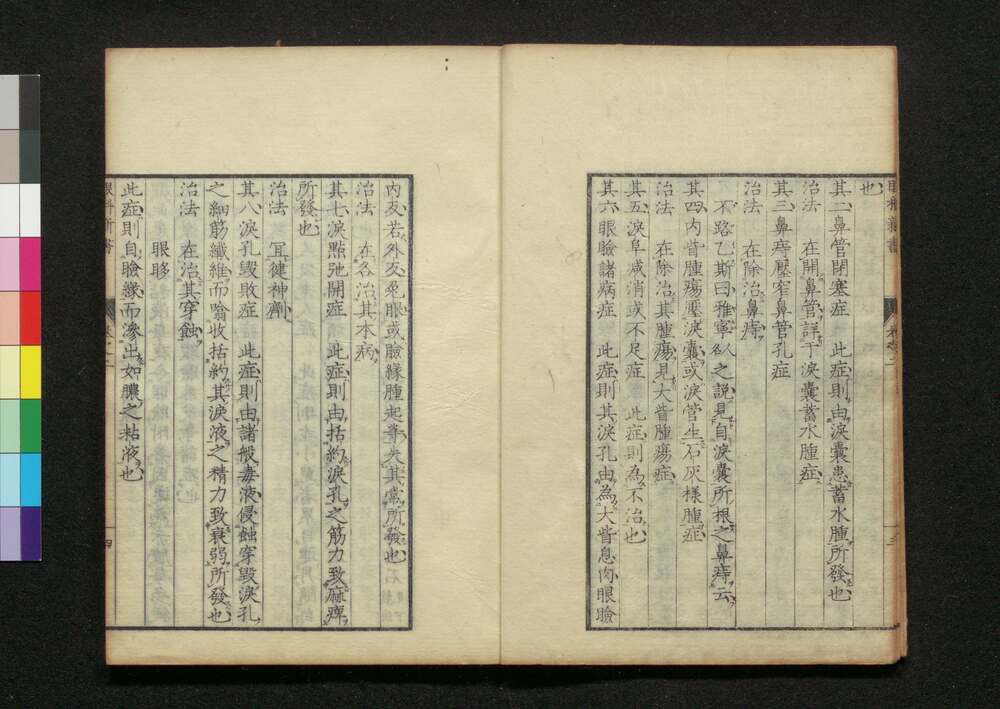 也
其二鼻管閉塞症　此症則由淚囊患蓄水腫所發也
治法　在開鼻管詳于淚囊蓄水腫症
其三鼻痔壓窄鼻管孔症
治法　在除治鼻痔
不路乙斯曰雅寧以之說見自淚囊所根之鼻痔云
其四內眥腫瘍壓淚囊或淚管生石灰樣腫症
治法　在除治其腫瘍見大眥腫瘍症
其五淚阜減消或不足症　此症則為不治也
其六眼瞼諸病症　此症則其淚孔由為大眥息肉眼瞼
內反若外反兔眼或瞼緣腫起等失其常所發也
治法　在各治其本病
其七淚點弛開症　此症則由括約淚孔之筋力致麻痺
所發也
治法　宜健神劑
其八淚孔毀敗症　此症則由諸般毒液侵蝕穿毀淚孔
之細筋纖維而噏收括約其淚液之精力致衰弱所發也
治法　在治其穿蝕
眼眵
此症則自瞼緣而滲出如膿之粘液也
眼科新書
四